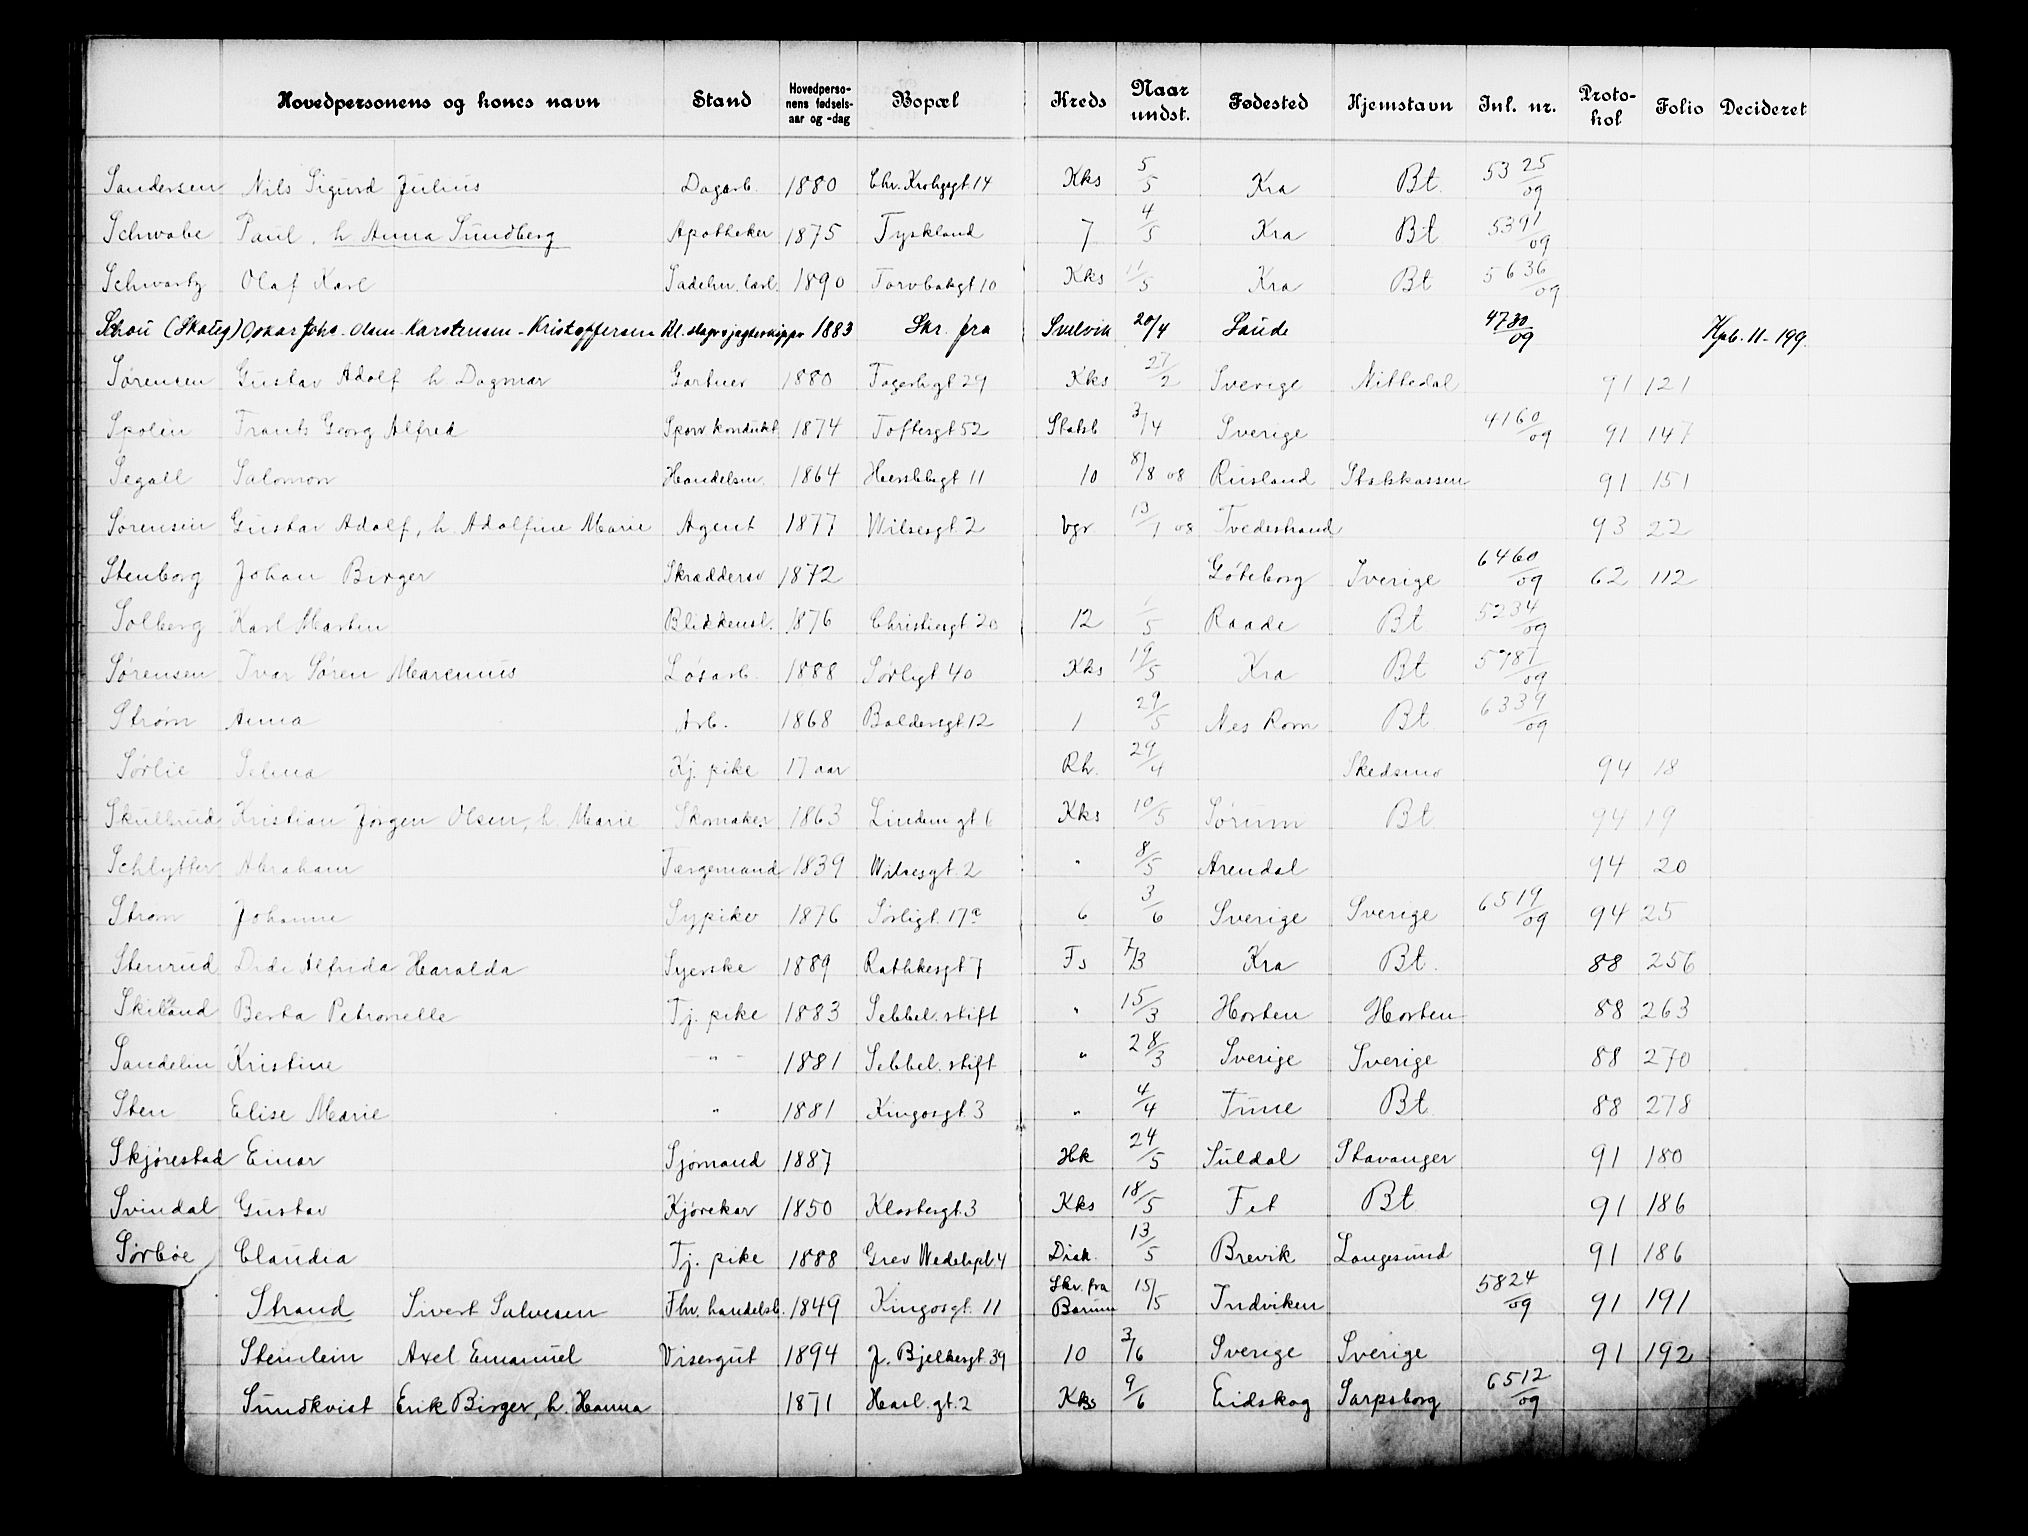 Hovedpersonens og kones navn Stand Hovedperso-nens fødsels-aar og -dag Bopæl Kreds Naar undst. Fødested Hjemstavn Inl. nr. Proto-kol Folio Decideret
Sandersen Nils Sigurd Julius Dagarb. 1880 Chr. Krohgsgt. 14 Kks 5/5 Kra Bt. 5325/09
Schwabe Paul, h. Anna Sundberg Apotheker 1875 Tyskland 7 4/5 Kra Bt 5391/09
Schwartz Olaf Karl Sadelm. lærl. 1890 Torvbakgt 10 Kks 11/5 Kra Bt 5636/09
Schou (Skoug) Oskar Johs. Olsen-Karstensen-Kristoffersen 1883 Skr. fra Svelvik 20/4 Sande 4730/09 Hpb. 11-199.
Sørensen Gustav Adolf h Dagmar Gartner 1880 Fagerhgt 29 Kks 27/2 Sverige Nittedal 91 121
Spolén Frants Georg Alfred Sporv. kondukt. 1874 Toftesgt 52 Statsb 3/4 Sverige 4160/09 91 147
Segall Salomon Handelsm. 1864 Herslebsgt 11 10 8/8 08 Rusland Statskassen 91 151
Sørensen Gustav Adolf, h. Adolfine Marie Agent 1877 Wilsesgt 2 Vgr. 13/1 08 Tvedestrand 93 22
Stenborg Johan Birger Skræddersv 1872 Göteborg Sverige 6460/09 62 112
Solberg Karl Marten Blikkensl. 1876 Christiesgt 20 12 1/5 Raade Bt 5234/09
Sørensen Ivar Søren Marenius Løsarb. 1888 Sørligt 40 Kks 19/5 Kra Bt 5987/09
Strøm Anna Arb. 1868 Baldersgt 12 1 29/5 Nes Rom Bt 6339/09
Sørlie Selma Kj. pike 17 aar Rh. 29/4 Skedsmo 94 18
Skullrud Kristian Jørgen Olsen, h. Marie Skomaker 1863 Lindem gt 6 Kks 10/5 Sørum Bt. 94 19
Schlytter Abraham Færgemand 1839 Wilsesgt. 2 " 8/5 Arendal 94 20
Strøm Johanne Sypike 1876 Sørligt. 17a 6 3/6 Sverige Sverige 6519/09 94 25
Stenrud Didi Alfrida Haralda Syerske 1889 Rathkesgt 7 Fs 7/3 Kra Bt. 88 256
Skiland Berta Petronelle Tj. pike 1883 Sebbel. stift " 15/3 Horten Horten 88 263
Sandelin Kristine -"- 1881 Sebbel. stift " 28/3 Sverige Sverige 88 270
Sten Elise Marie " 1881 Kingosgt 3 " 4/4 Tune Bt 88 278
Skjørestad Einar Sjømand 1887 Hk 24/5 Suldal Stavanger 91 180
Svindal Gustav Kjørekar 1850 Klostergt. 3 Kks 18/5 Fet Bt 91 186
Sørbøe Claudia Tj. pike 1888 Grev Wedelspl. 4 Diak. 13/5 Brevik Langesund 91 186
Strand Sivert Salvesen Fhv. handelsb. 1849 Kingosgt. 11 Skr. fra Bærum 15/5 Indviken 5824/09 91 191
Steinlein Axel Emanuel Visergut 1894 J. Bjelkesgt. 39 10 3/6 Sverige Sverige 91 192
Sundkvist Erik Birger, h. Hanna 1871 Hasl. gt. 2 Kks 9/6 Eidskog Sarpsborg 6512/09